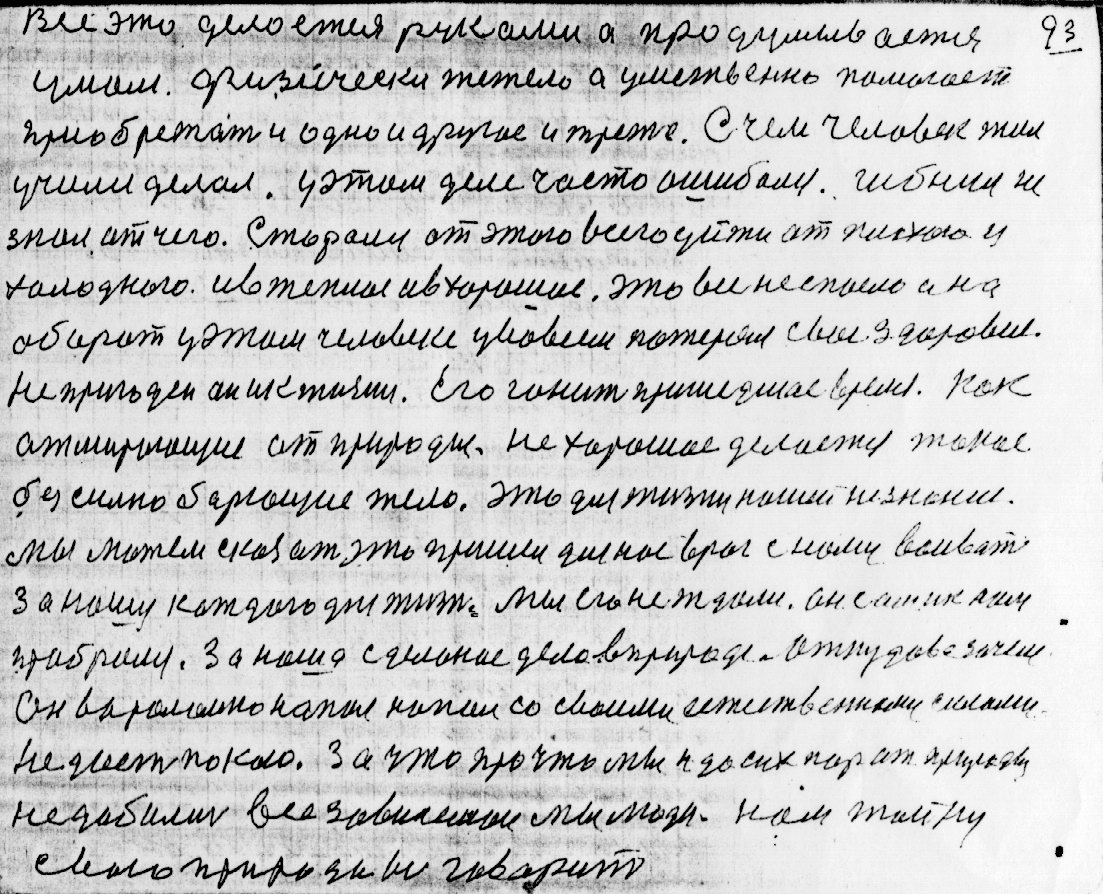 Все это делоется руками а продумывается 93
умом. Физически тежело а умственно помогает
приобретать и одно и другое и трете. С чем человек жил
учили делал. у этом деле часто ошибали. гибнил не
знал от чего. Старали от этого всего уйти от плохого и
холодного. и в теплое и в хорошое. это все не спасло а на
оборот у этом человеке у совсем потерял свое здоровие.
не пригоден он и к жизни. Его гонит пришедшое время. Как
отмирающие от природы. не хорошое делоется такое
безсилно борющие тело. это для жизни нашей незнание.
мы можем сказат это пришел для нас враг с нами воеват
за нашу каждого дня жизн. мы его не ждали. он сам ик нам
прабрали. За наша сделоное дело в природе. откудова зачем
Он вароломно напал напал со своими естественными силами.
не дает покою. За что про что мы и до сих пор от природы
недобили все зависимое мы люди. нам тайну
свою природа не говорит